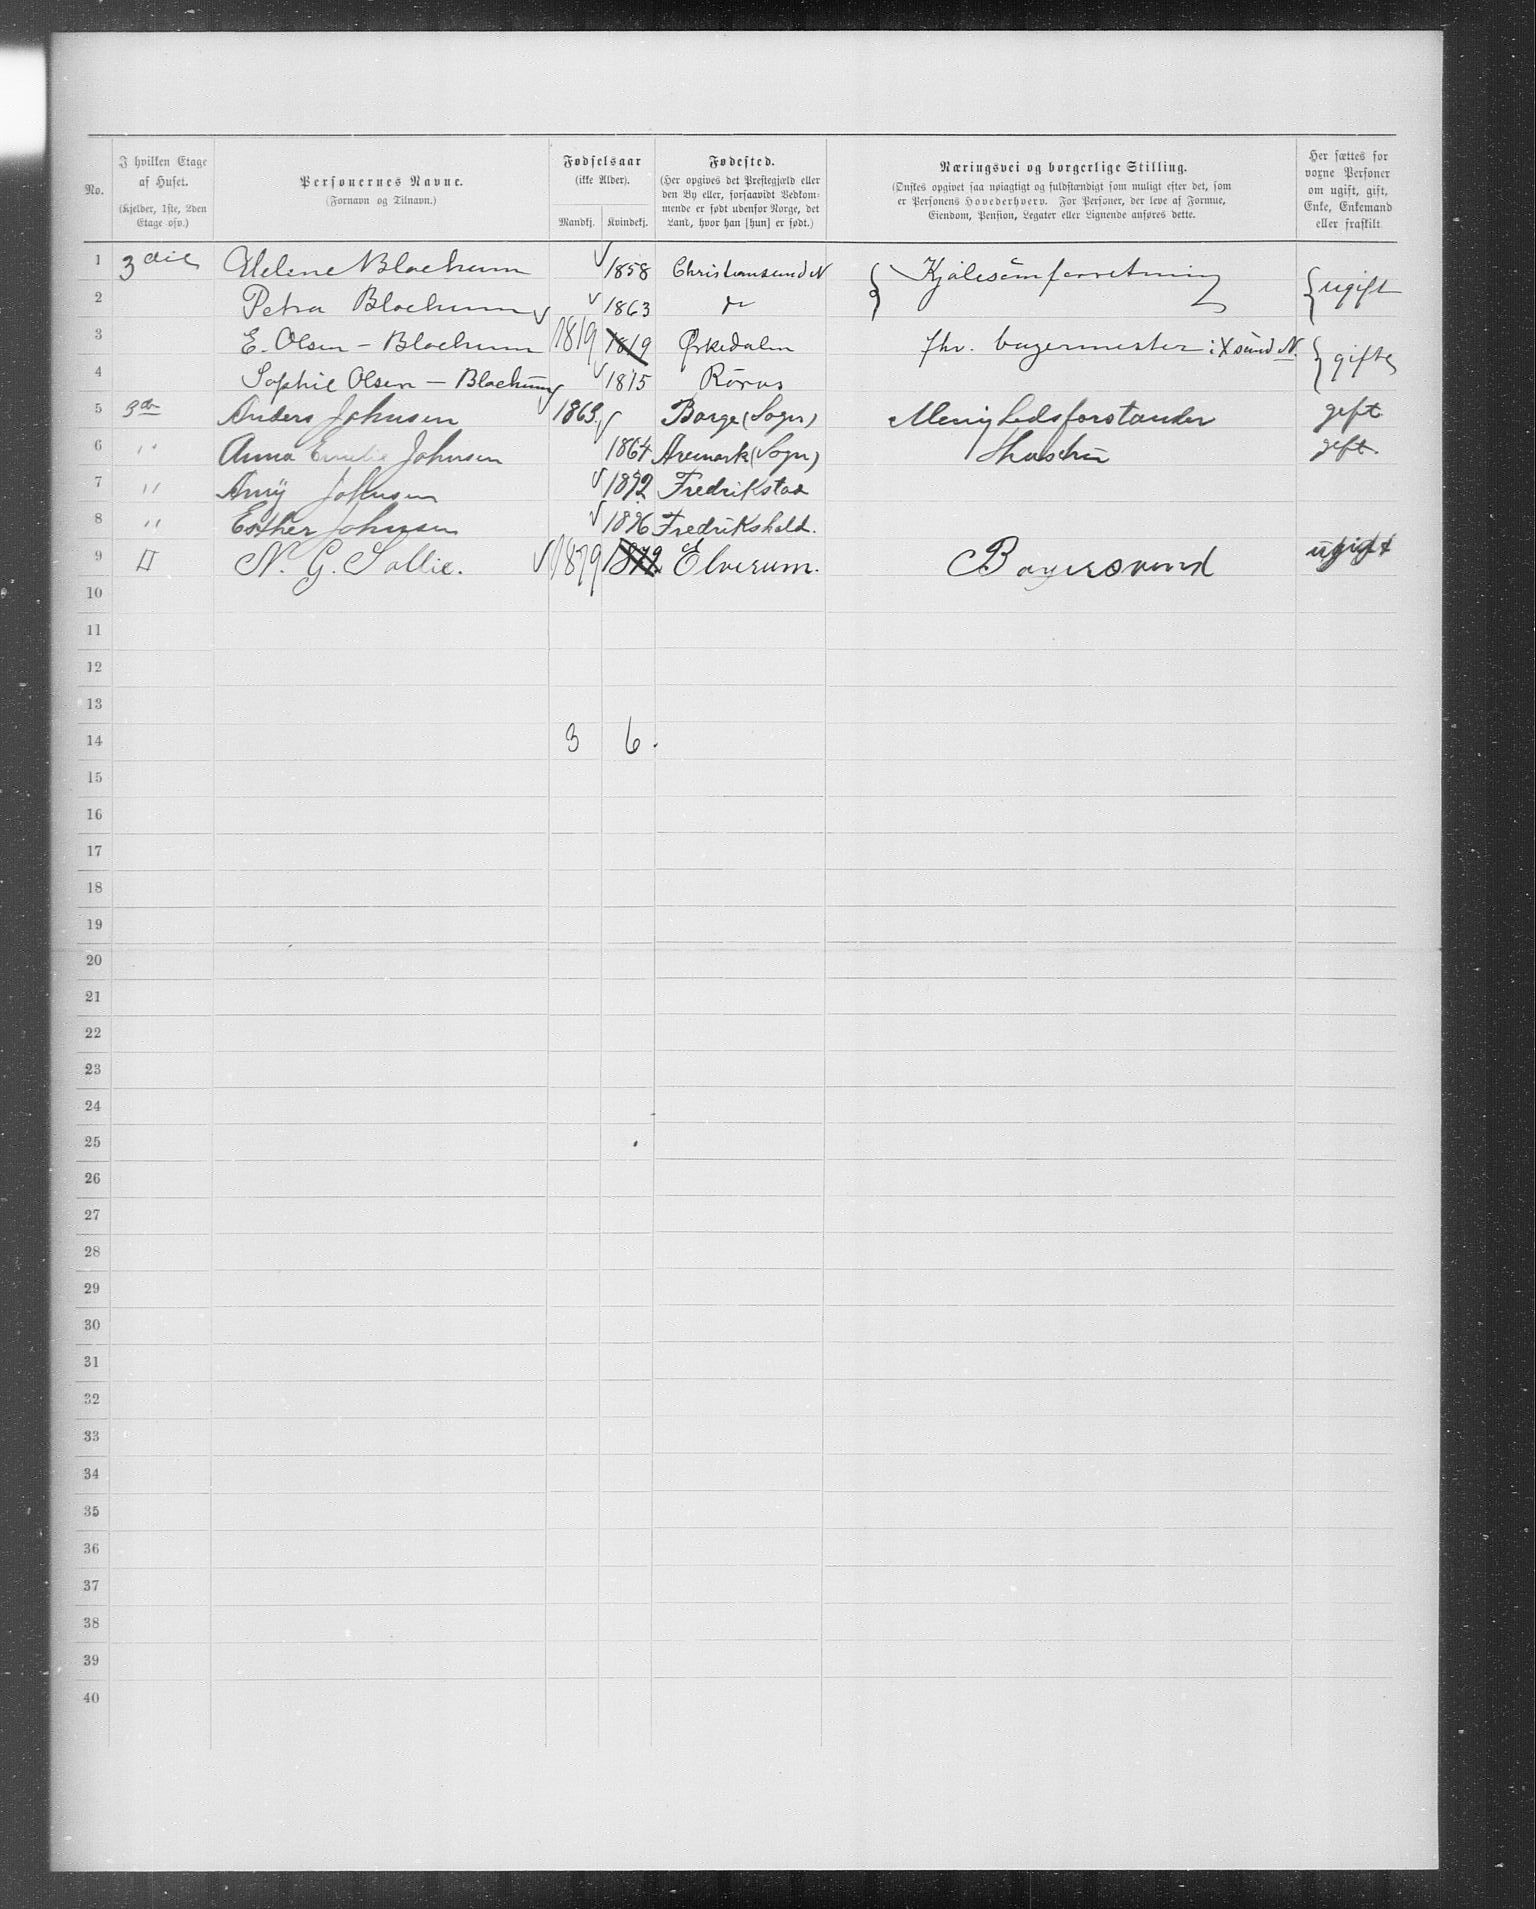 No.
I hvilken Etage af Huset. (Kjelder, 1ste, 2den Etage osv.)
Personernes Navne. (Fornavn og Tilnavn.)
Fødselsaar (ikke Alder).
Mandkj. Kvindekj.
Fødested. (Her opgives det Prestegjæld eller den By eller, forsaavidt Vedkommende er født udenfor Norge, det Land, hvor han [hun] er født.)
Næringsvei og borgerlige Stilling. (Ønskes opgivet saa nøiagtigt og fuldstændigt som muligt efter det, som er Personens Hovederhverv. For Personer, der leve af Formue, Eiendom, Pension, Legater eller Lignende anføres dette.
Her sættes for voxne Personer om ugift, gift, Enke, Enkemand eller fraskilt
1 3die Helene Blackum 1858 Christiansund N Kjolesömforretning ugift
2 Petra Blackum 1863 do
3 E. Olsen - Blackum 1819 1819 Ørkedalen fhv. bagermester i Xsund N. gifte
4 Sophie Olsen - Blackum 1815 Röros
5 3die Anders Johnsen 1863 Borge (Sogn) Menighedsforstander gift
6 " Anna Emilie Johnsen 1864 Aremark (Sogn) Hustru gift
7 " Amy Johnsen 1892 Fredrikstad
8 " Esther Johnsen 1896 Fredrikshald.
9 II N. G. Sollie. 1879 1879 Elverum. Bagersvend ugift
10
11
12
13
14 3 6.
15
16
17
18
19
20
21
22
23
24
25
26
27
28
29
30
31
32
33
34
35
36
37
38
39
40